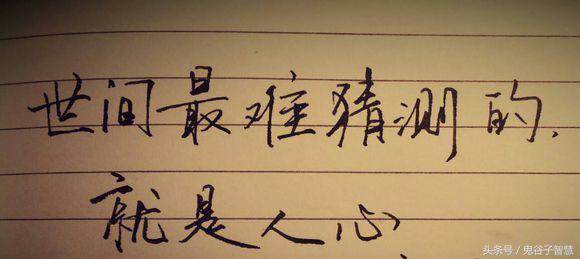 世间最难猜测的.
就是人心
头条号／鬼谷子智慧